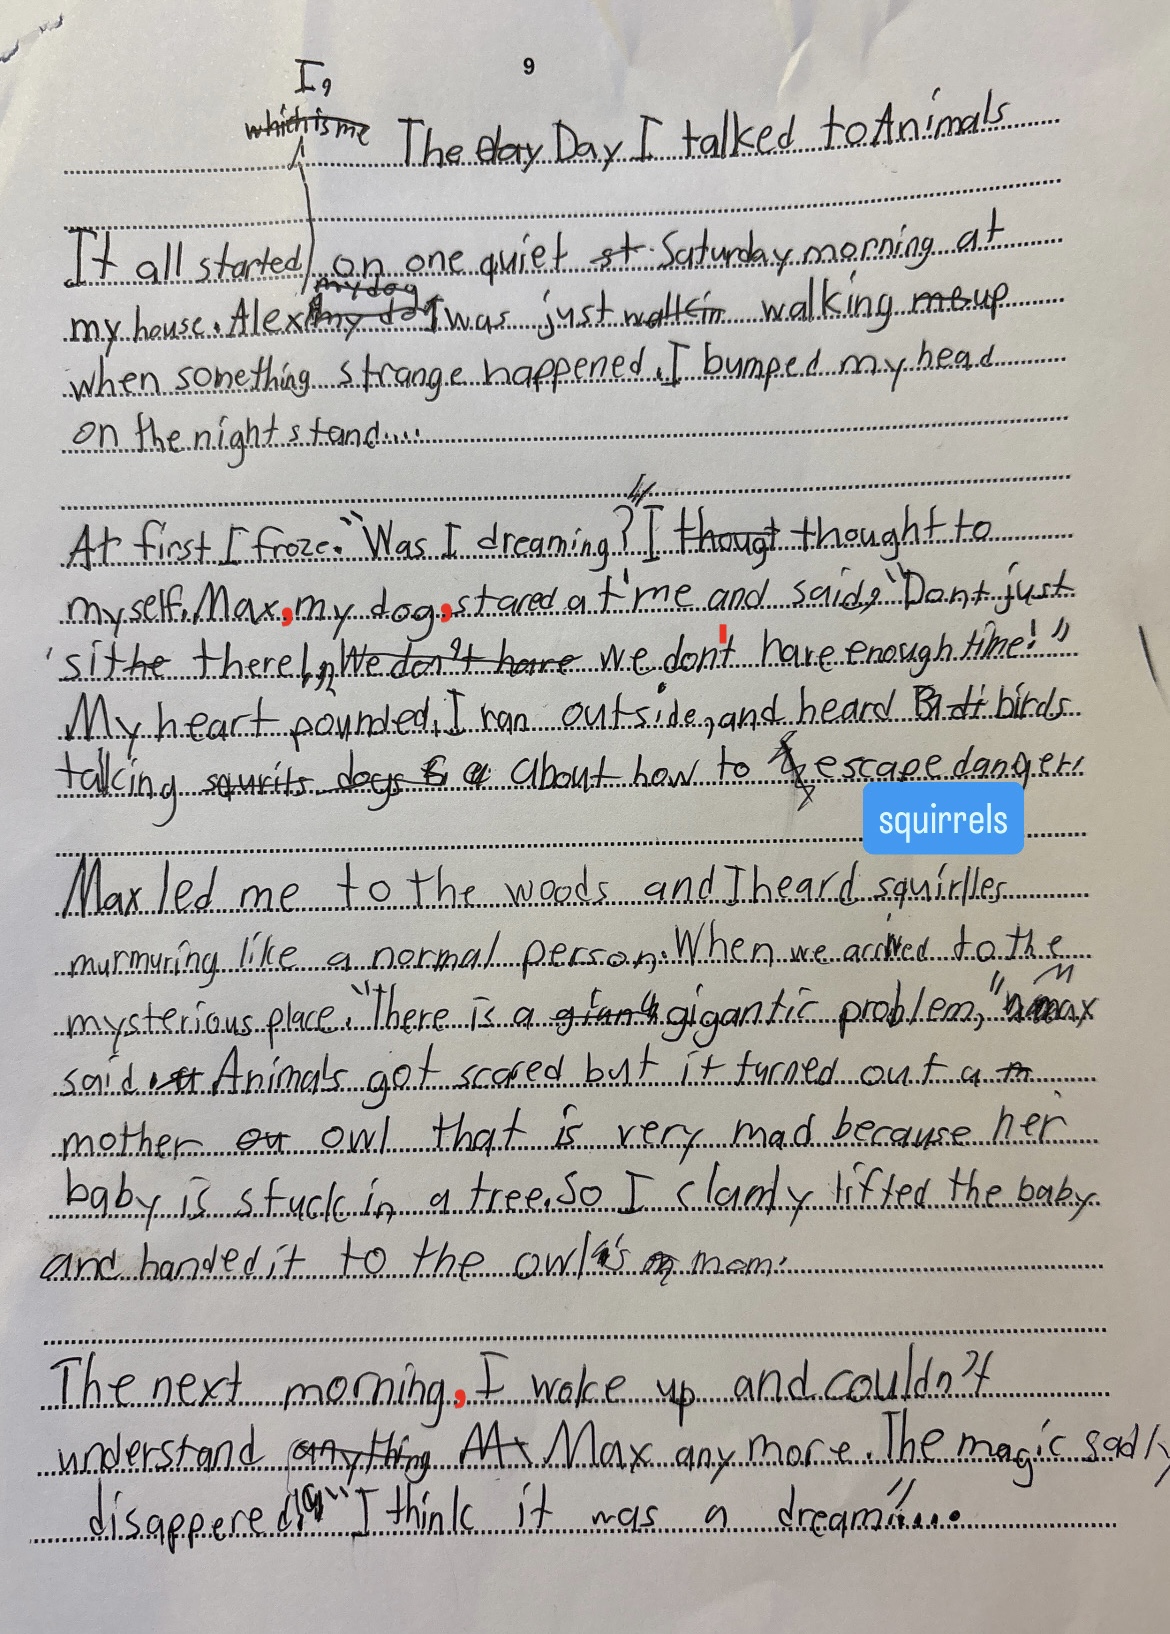 9
I,
which is me
The day Day I talked to Animals
It all started on one quiet st Saturday morning at
my dog
my house. Alex my dog I was just walkin walking me up
when something strange happened. I bumped my head
on the night stand....
At first I froze. "Was I dreaming?" I thougt thought to
myself. Max, my dog, stared at me and said, "Dont just
sit the there! We don't have we don't have enough time!"
My heart pounded. I ran outside, and heard birds
talking squrits dogs a about how to escape danger.
squirrels
Max led me to the woods and I heard squirlles
murmuring like a normal person. When we arrived to the
mysterious place. "There is a giant gigantic problem," max
said. Animals got scared but it turned out a m
mother ou owl that is very mad because her
baby is stuck in a tree. So I clamly lifted the baby
and handed it to the owl's mom.
The next morning, I woke up and couldn't
understand anything Mx Max any more. The magic sadly
disappered. "I think it was a dream"....